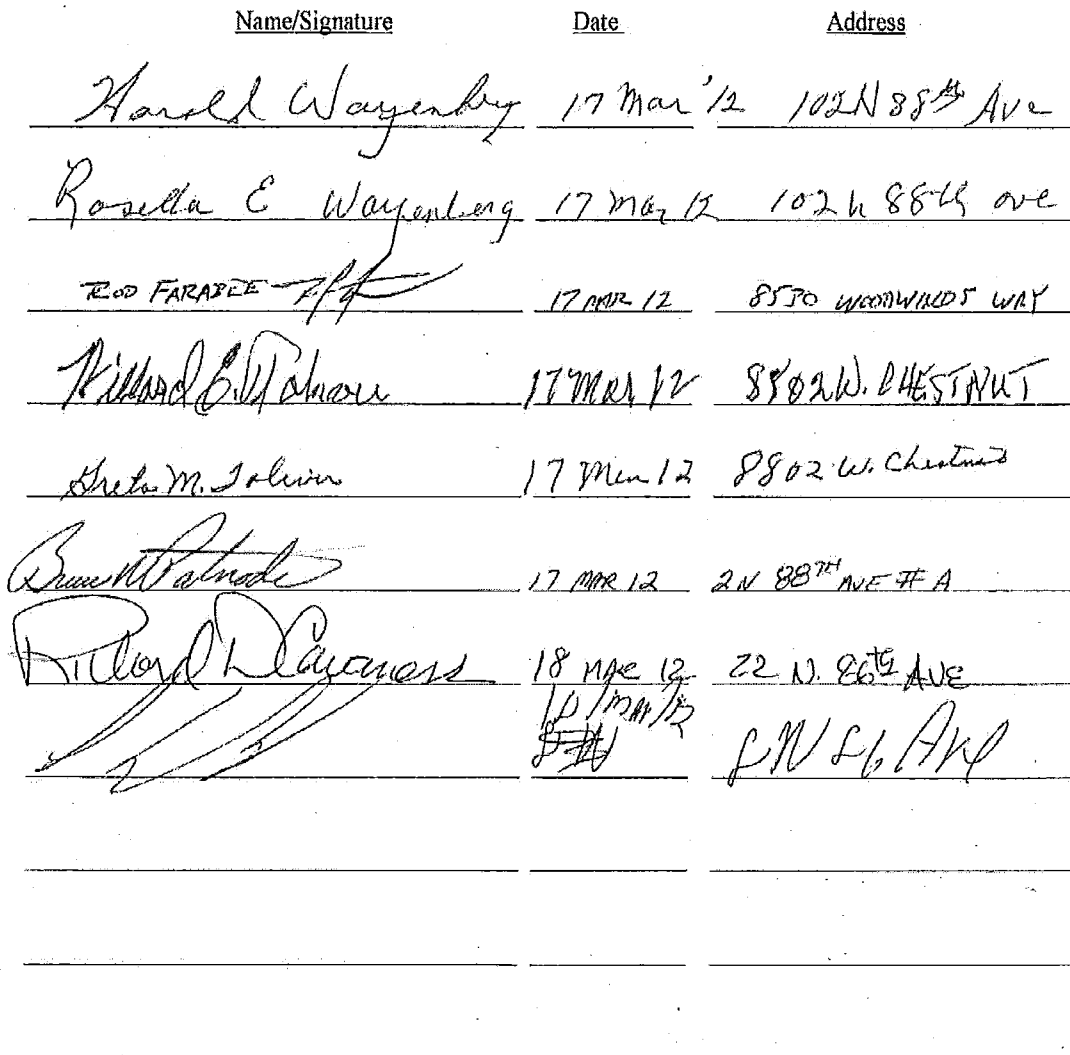 Name/Signature Date Address
Harold Wayenberg 17 Mar '12 102 N 88th Ave
Rosella E Wayenberg 17 Mar 12 102 N 88th ave
ROD FARABEE 17 MAR 12 8530 WOODWINDS WAY
Willard E. 17 Mar 12 8802 W. CHESTNUT
Greta M. 17 Mar 12 8802 W. Chestnut
Bruce Patnode 17 MAR 12 2N 88TH AVE # A
Richard D Caveness 18 MAR 12 22 N. 86th AVE
Mar/12
8 N 86 Ave